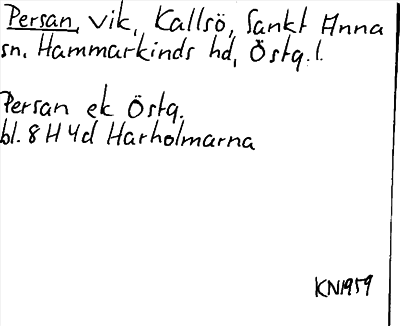 Persan, vik, Kallsö, Sankt Anna
sn, Hammarkinds hd, Östg. l.
Persan ek Östg.
bl. 8 H 4d Harholmarna
KN1959